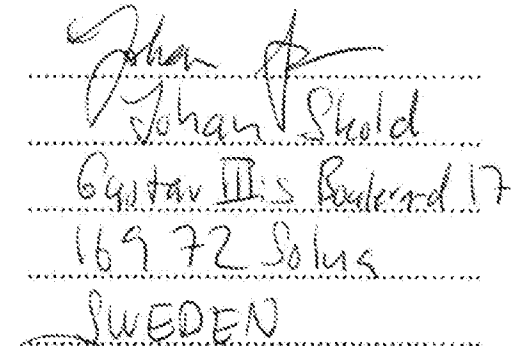 Johan
Johan Skold
Gustav III:s Boulevard 17
169 72 Solna
SWEDEN